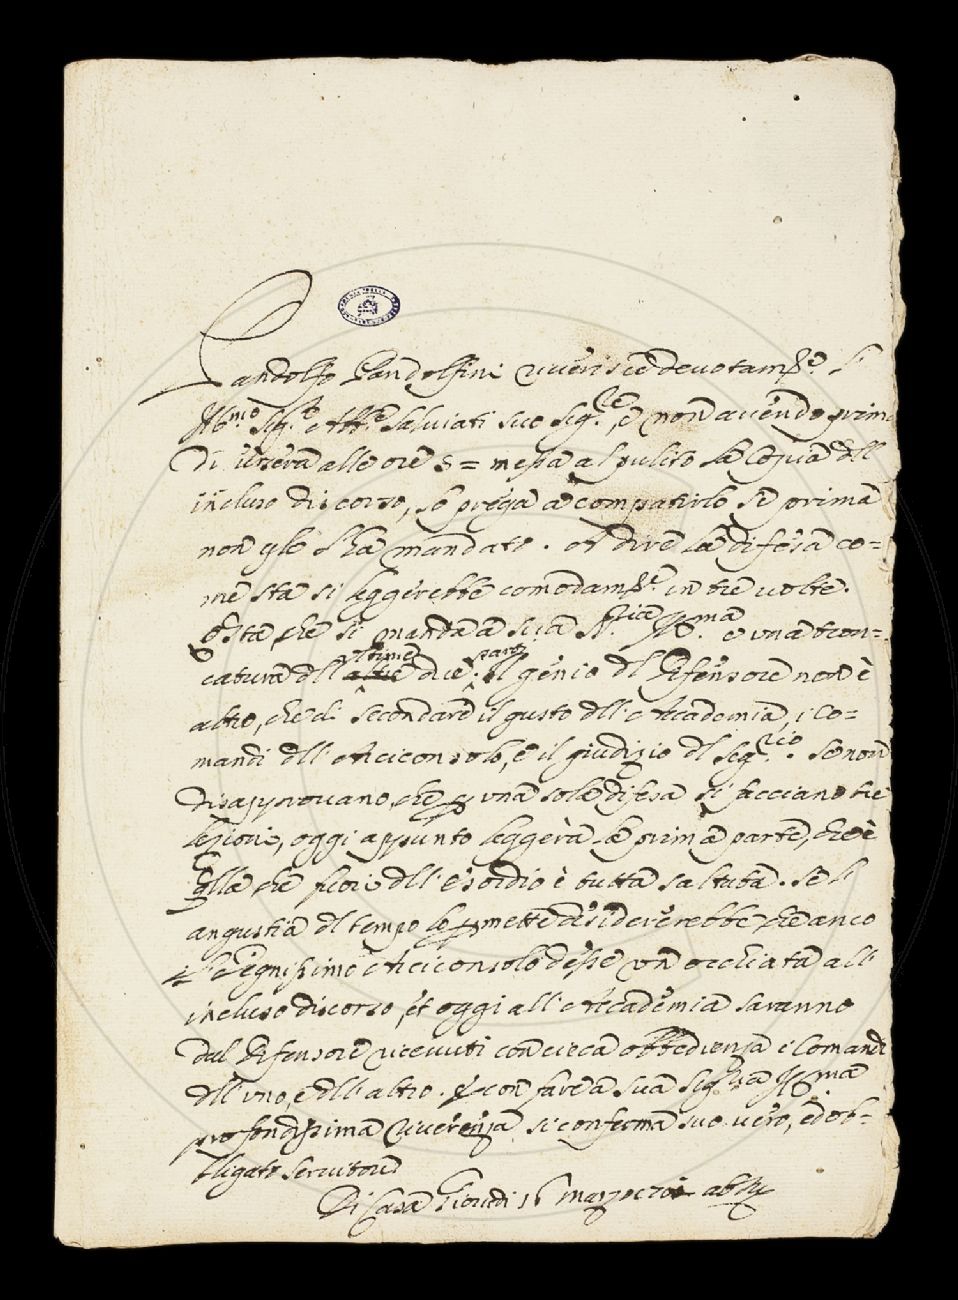 Pandolfo Pandolfini riverisce devotam.te l'
Ill.mo Sig.re Abb.e Salviati suo Sig.re, e non avendo prim
di iersera alle ore 5 = messa al pulito la Copia dell
incluso discorso, lo prega a compatirlo se prima
non glie l'ha mandato. A dire la difesa co=
me sta si leggerebbe comodam.te in tre volte.
Questa che si manda a S.ria Ill.ma è una tron=
catura dell ultime due parti. Il genio del Difensore non è
altro, che di secondare il gusto dell'Accademia, i Co=
mandi dell'Arciconsolo, e il giudizio del Seg.rio. Se non
disapprovano, che p una sola difesa si facciano tre
lezioni, oggi appunto leggerà la prima parte, che è
q.lla che fuori dell'esordio è tutta saltata. Se l'
angustia del tempo lo pmette desidererebbe che anco
il Degnissimo Arciconsolo desse un occhiata all'
incluso discorso, et oggi all'Accademia saranno
dal Difensore ricevuti con cieca obbedienza i Comandi
dell'uno, e dell'altro. E con fare a sua Sig.ria Ill.ma
profondissima riverenza si conferma suo vero, ed ob=
bligato servitore
Di Casa Giovedi 16 marzo ab In.e